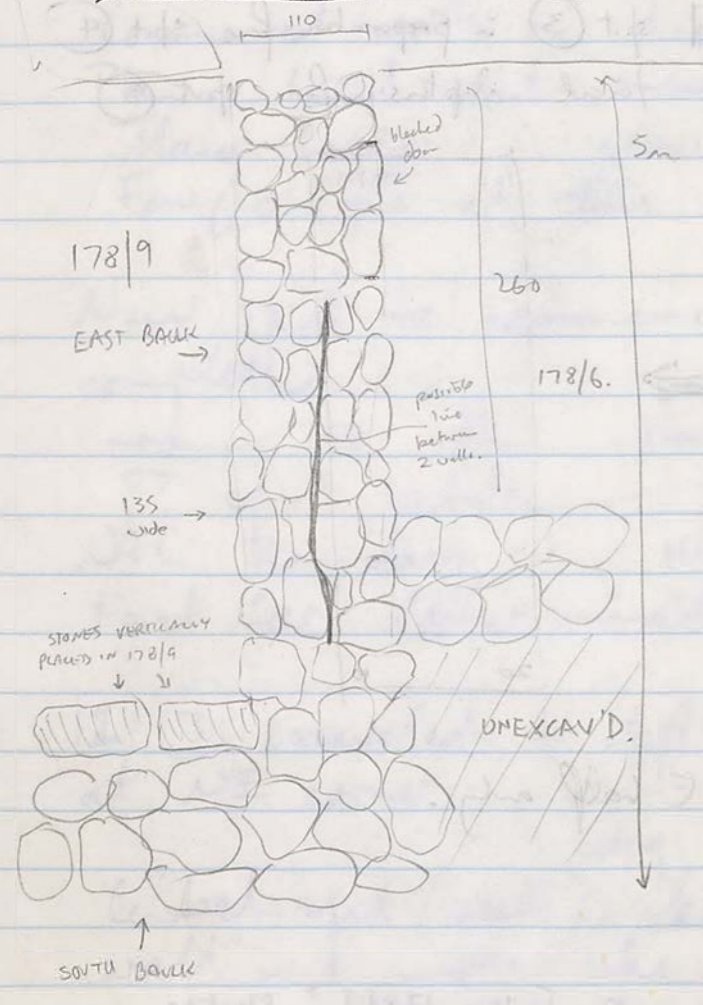 110
blocked
door
5m
178/9
260
EAST BAULK
178/6.
possible
line
between
2 walls.
135
wide
STONES VERTICALLY
PLACED IN 178/9
UNEXCAV'D.
SOUTH BAULK